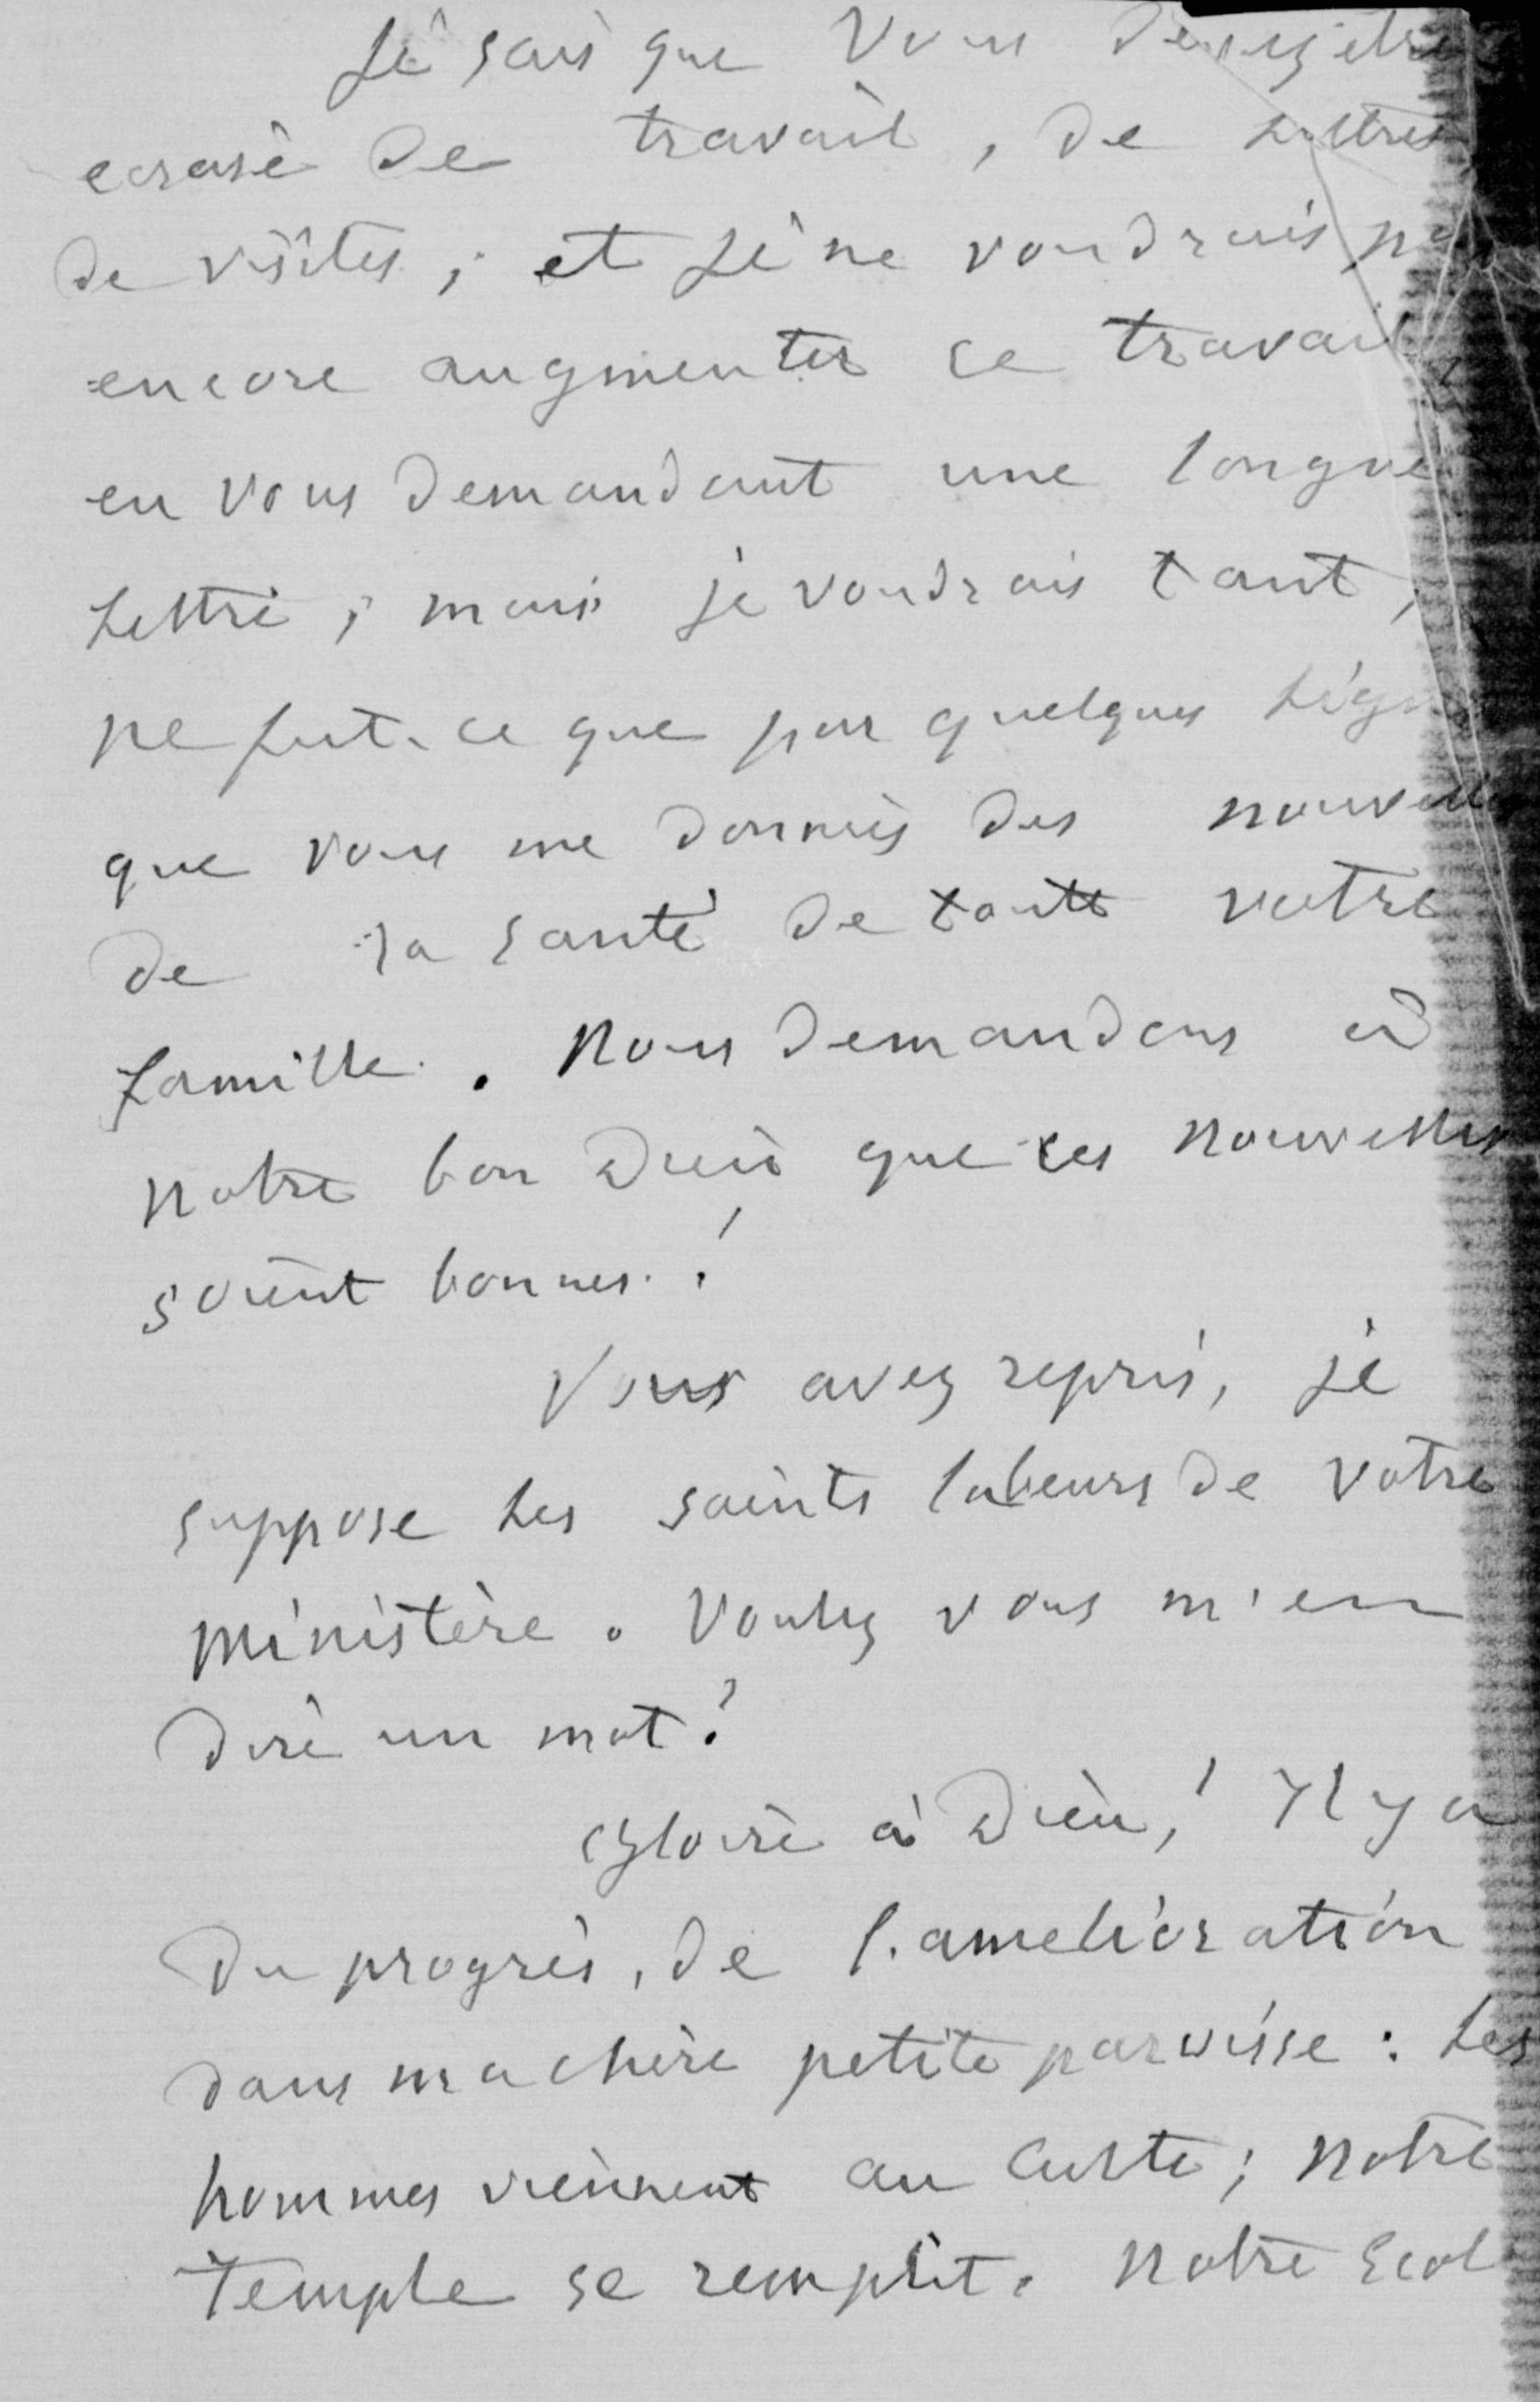 Je sais que Vous devez être
ecrasé de travail, de Lettres
de visites ; et Je ne voudrais pas
encore augmenter ce travail
en vous demandant une longue
Lettre ; mais je voudrais tant,
ne fut-ce que par quelques Lignes
que vous me donniés des nouvelles
de la santé de toute votre
famille. Nous demandons à
notre bon Dieu que ces nouvelles
soient bonnes !
Vous avez repris, je
suppose Les saints labeurs de votre
ministère. Voulez vous m'en
dire un mot ?
Gloire à Dieu ! Il y a
Du progrès, de l'amelioration
dans ma chère petite paroisse : Les
hommes viennent au Culte ; notre
Temple se remplit. Notre Ecol